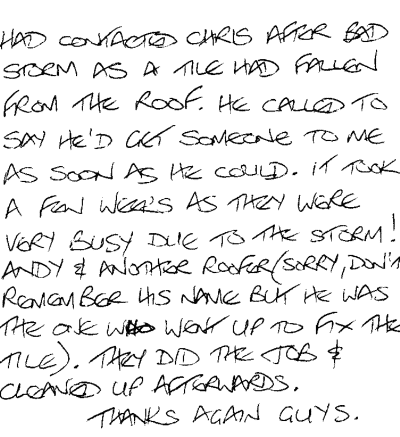 HAD CONTACTED CHRIS AFTER BAD
STORM AS A TILE HAD FALLEN
FROM THE ROOF. HE CALLED TO
SAY HE'D GET SOMEONE TO ME
AS SOON AS HE COULD. IT TOOK
A FEW WEEK'S AS THEY WERE
VERY BUSY DUE TO THE STORM!
ANDY & ANOTHER ROOFER (SORRY, DON'T
REMEMBER HIS NAME BUT HE WAS
THE ONE WHO WENT UP TO FIX THE
TILE). THEY DID THE JOB &
CLEANED UP AFTERWARDS.
THANKS AGAIN GUYS.